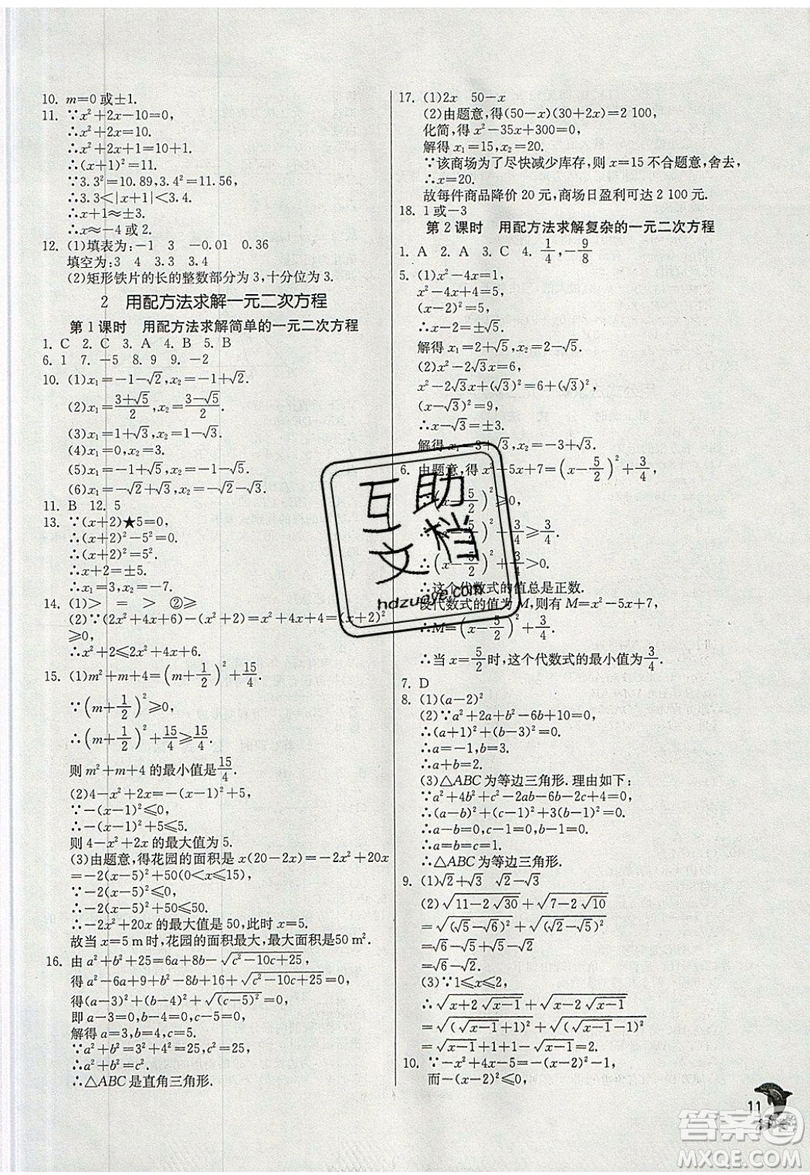 10. m=0或±1.
11. ∵x²+2x-10=0,
∴x²+2x=10.
∴x²+2x+1=10+1.
∴(x+1)²=11.
∵3.3²=10.89,3.4²=11.56.
∴3.3<|x+1|<3.4.
∴x+1≈±3.
∴x≈-4或2.
12. (1)填表为:-1 3 -0.01 0.36
填空为:3 4 3.3 3.4
(2)矩形铁片的长的整数部分为3,十分位为3.
2 用配方法求解一元二次方程
第1课时 用配方法求解简单的一元二次方程
1. C 2. C 3. A 4. B 5. B
6. 1 7. -5 8. 9 9. -2
10. (1)x₁=-1-√2,x₂=-1+√2.
(2)x₁=(3+√5)/2,x₂=(3-√5)/2.
(3)x₁=-1+√6,x₂=-1-√6.
(4)x₁=0,x₂=2.
(5)x₁=-1-√3,x₂=-1+√3.
(6)x₁=-√2+√3,x₂=-√2-√3.
11. B 12. 5
13. ∵(x+2)★5=0,
∴(x+2)²-5²=0.
∴x+2=±5.
∴x₁=3,x₂=-7.
14. (1)> = > ②≥
(2)∵(2x²+4x+6)-(x²+2)=x²+4x+4=(x+2)²
≥0,
∴x²+2≤2x²+4x+6.
15. (1)m²+m+4=(m+1/2)²+15/4.
∵(m+1/2)²≥0,
∴(m+1/2)²+15/4≥15/4.
则m²+m+4的最小值是15/4.
(2)4-x²+2x=-(x-1)²+5,
∵-(x-1)²≤0,
∴-(x-1)²+5≤5.
则4-x²+2x的最大值为5.
(3)由题意,得花园的面积是x(20-2x)=-2x²+20x
=-2(x-5)²+50,
∵-2(x-5)²≤0,
∴-2(x-5)²+50≤50.
∴-2x²+20x的最大值是50,此时x=5.
故当x=5 m时,花园的面积最大,最大面积是50 m².
16. 由a²+b²+25=6a+8b-√(c²-10c+25),
得a²-6a+9+b²-8b+16+√(c²-10c+25)=0,
得(a-3)²+(b-4)²+√((c-5)²)=0,
即a-3=0,b-4=0,c-5=0,
解得a=3,b=4,c=5.
∵a²+b²=3²+4²=25,c²=25,
∴a²+b²=c².
∴△ABC是直角三角形.
17. (1)2x 50-x
(2)由题意,得(50-x)(30+2x)=2 100,
化简,得x²-35x+300=0,
解得x₁=15,x₂=20.
∵该商场为了尽快减少库存,则x=15不合题意,舍去,
∴x=20.
故每件商品降价20元,商场日盈利可达2 100元.
18. 1或-3
第2课时 用配方法求解复杂的一元二次方程
1. A 2. A 3. C 4. 1/4,-9/8
5. (1)x²-4x=1,
x²-4x+4=5,
(x-2)²=5,
∴x-2=±√5.
解得x₁=2+√5,x₂=2-√5.
(2)x²-2√3x=6,
x²-2√3x+(√3)²=6+(√3)²,
(x-√3)²=9,
∴x-√3=±3.
解得x₁=3+√3,x₂=-3+√3.
6. 由题意,得x²-5x+7=(x-5/2)²+3/4.
∵(x-5/2)²≥0,
∴(x-5/2)²+3/4≥3/4.
∴(x-5/2)²+3/4>0.
∴这个代数式的值总是正数.
设代数式的值为M,则有M=x²-5x+7,
∴M=(x-5/2)²+3/4.
∴当x=5/2时,这个代数式的最小值为3/4.
7. D
8. (1)(a-2)²
(2)∵a²+2a+b²-6b+10=0,
∴(a+1)²+(b-3)²=0.
∴a=-1,b=3.
∴a+b=2.
(3)△ABC为等边三角形.理由如下:
∵a²+4b²+c²-2ab-6b-2c+4=0,
∴(a-b)²+(c-1)²+3(b-1)²=0.
∴a-b=0,c-1=0,b-1=0.
∴a=b=c=1.
∴△ABC为等边三角形.
9. (1)√2+√3 √2+√3
(2)√(11-2√30)+√(7-2√10)
=√((√6-√5)²)+√((√5-√2)²)
=√6-√5+√5-√2
=√6-√2.
(3)∵1≤x≤2,
∴√(x+2√(x-1))+√(x-2√(x-1))
=√((√(x-1)+1)²)+√((√(x-1)-1)²)
=√(x-1)+1+1-√(x-1)=2.
10. ∵-x²+4x-5=-(x-2)²-1,
而-(x-2)²≤0,
11
互助文档
hdzuoye.com
答案
MXQE.COM